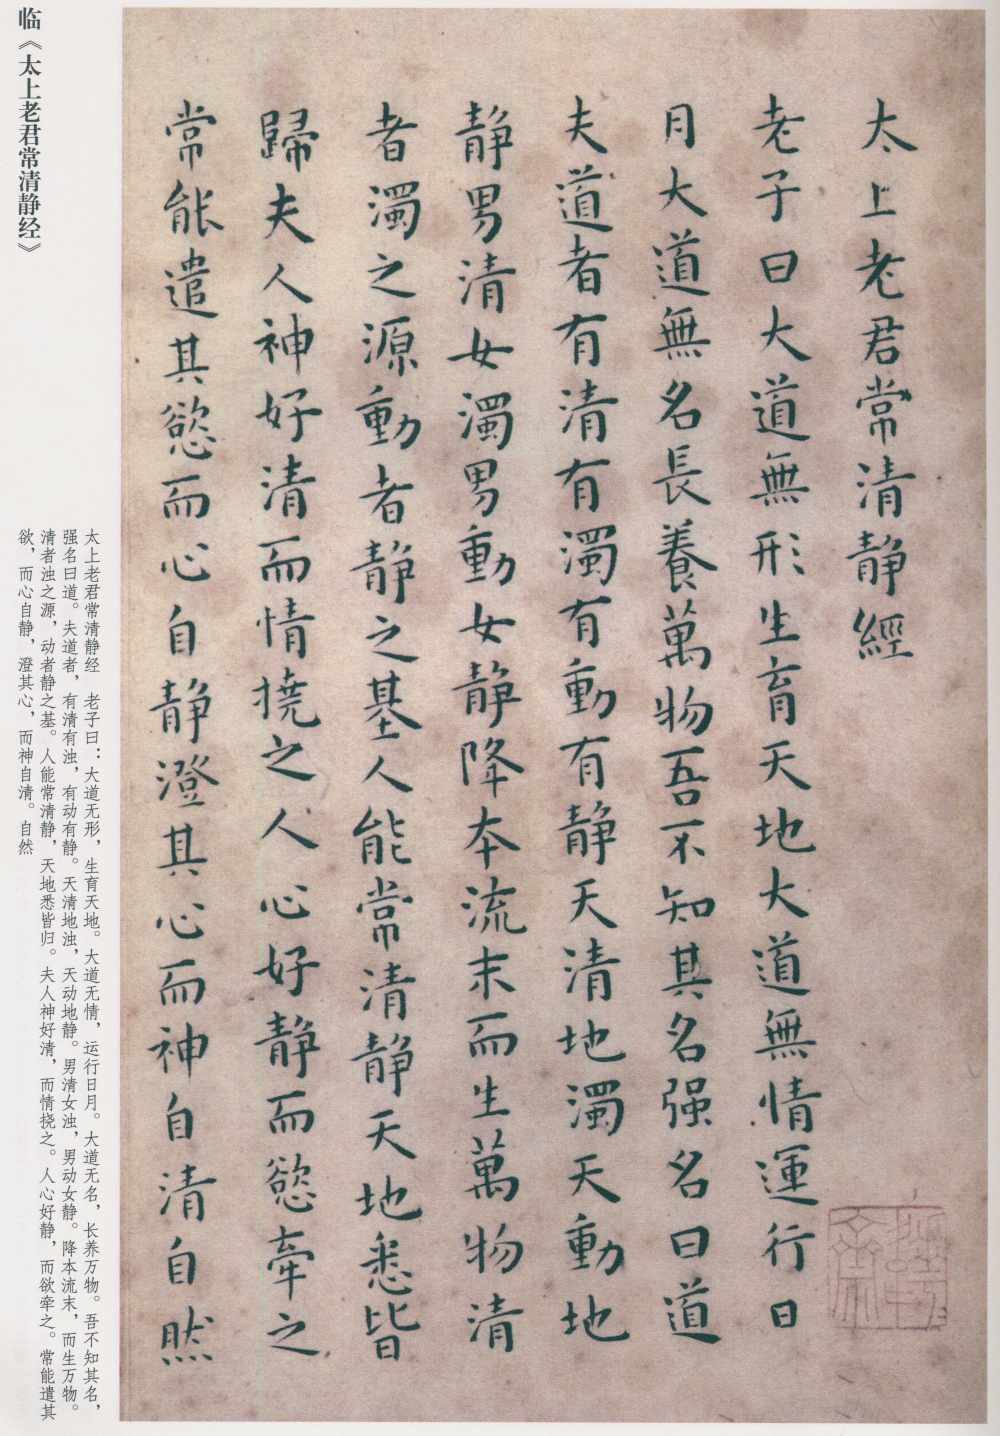 太上老君常清静經
老子曰大道無形生育天地大道無情運行日
月大道無名長養萬物吾不知其名强名曰道
夫道者有清有濁有動有静天清地濁天動地
静男清女濁男動女静降本流末而生萬物清
者濁之源動者静之基人能常清静天地悉皆
歸夫人神好清而情撓之人心好静而慾牽之
常能遣其慾而心自静澄其心而神自清自然
临《太上老君常清静经》
太上老君常清静经　老子曰：大道无形，生育天地。大道无情，运行日月。大道无名，长养万物。吾不知其名，
强名曰道。夫道者，有清有浊，有动有静。天清地浊，天动地静。男清女浊，男动女静。降本流末，而生万物。
清者浊之源，动者静之基。人能常清静，天地悉皆归。夫人神好清，而情挠之。人心好静，而欲牵之。常能遣其
欲，而心自静，澄其心，而神自清。自然